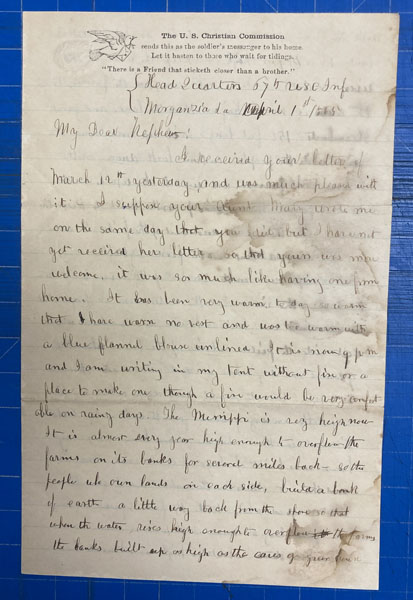 The U. S. Christian Commission
sends this as the soldier's messenger to his home.
Let it hasten to those who wait for tidings.
"There is a Friend that sticketh closer than a brother."
Head Quarters 67th U S C Inf
Morganzia La April 1st /1865
My Dear Nephew:
I received your letter of
March 12th yesterday and was much please with
it. I suppose your Aunt Mary wrote me
on the same day that you did but I have not
yet received her letter so that yours was more
welcome. it was so much like having one from
home. It has been very warm to day so warm
that I have worn no vest and was too warm with
a blue flannel blouse unlined. It is now 9 pm
and I am writing in my tent without fire or a
place to make one though a fire would be very comfort
able on rainy days. The Missisippi is very heigh now
It is almost every year high enough to overflow the
farms on its banks for several miles back - so the
people who own lands on each side, build a bank
of earth a little way back from the shore so that
when the water rises high enough to overflow the farms
the banks built up as high as the eaves of your